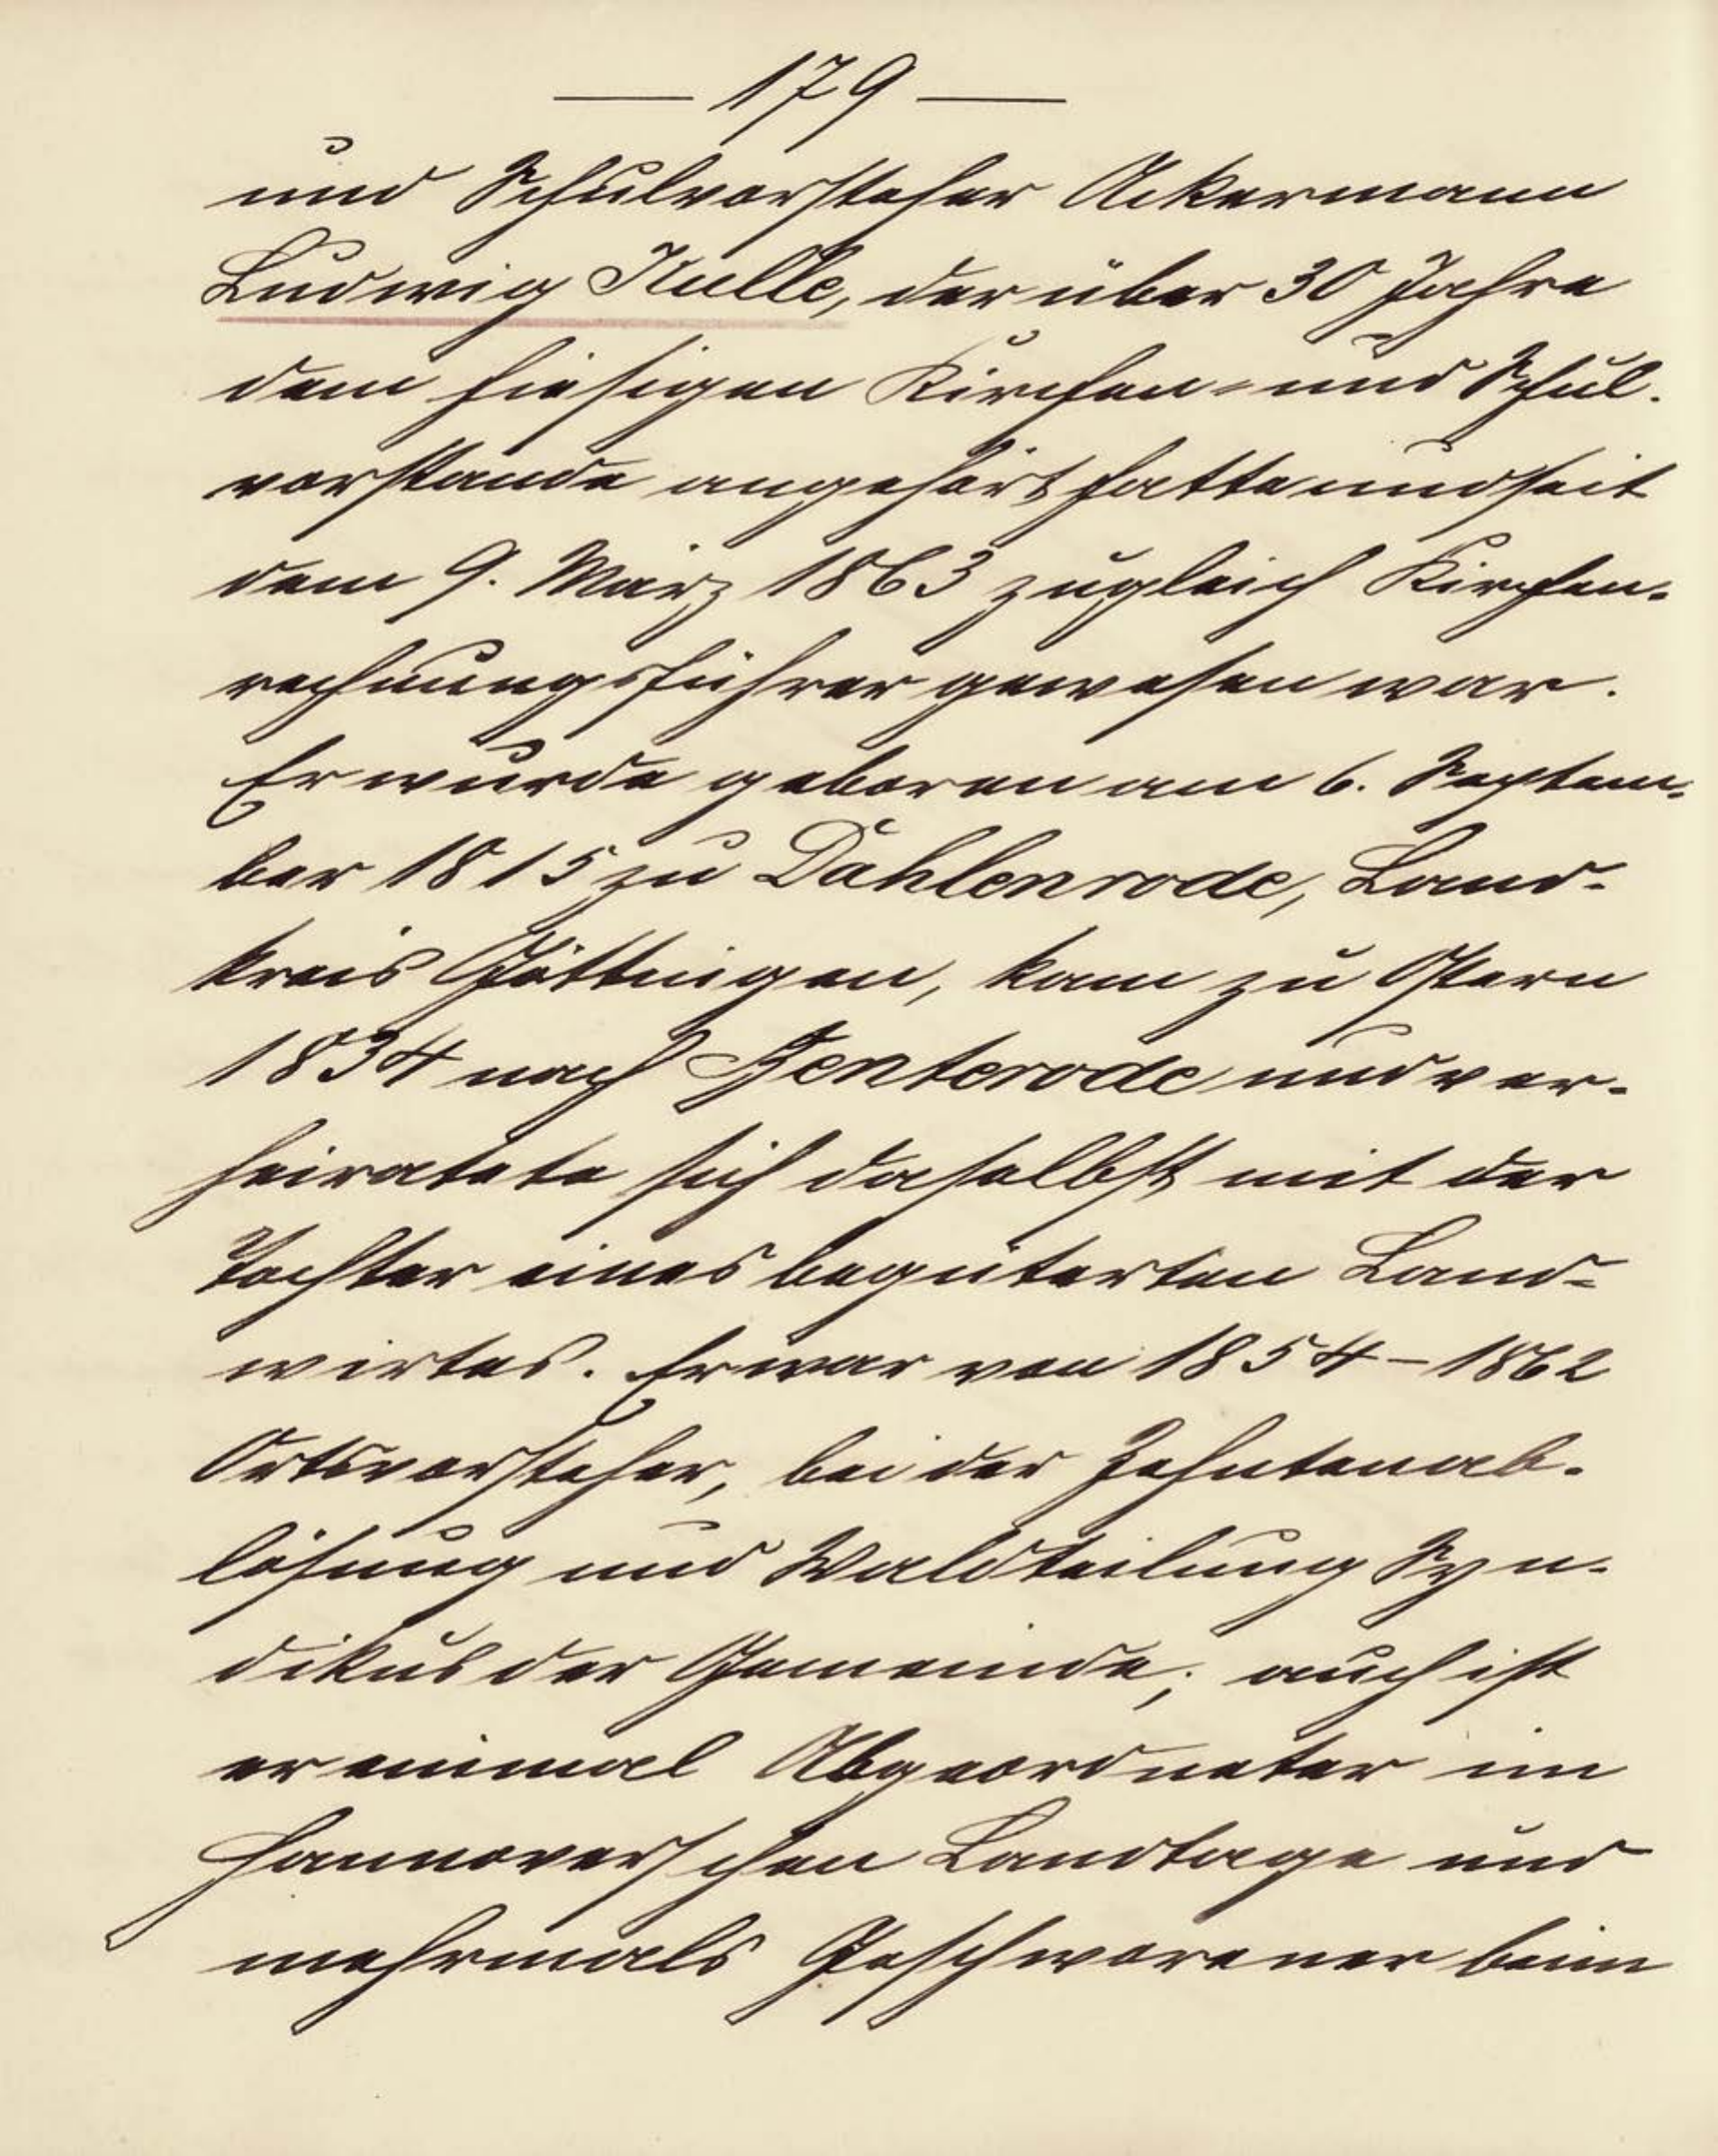 — 179 —
und Schulvorsteher Ackermann
Ludwig Nulle, der über 30 Jahre
dem hiesigen Kirchen- und Schul-
vorstande angehört hatte und seit
dem 9. März 1863 zugleich Kirchen-
rechnungsführer gewesen war.
Er wurde geboren am 6. Septem-
ber 1815 zu Dahlenrode, Land-
kreis Göttingen, kam zu Ostern
1834 nach Benterode und ver-
heiratete sich daselbst mit der
Tochter eines begüterten Land-
wirtes. Er war von 1854–1862
Ortsvorsteher, bei der Zehntenab-
lösung und Waldteilung Syn-
dikus der Gemeinde; auch ist
er einmal Abgeordneter im
Hannoverschen Landtage und
mehrmals Geschworener beim